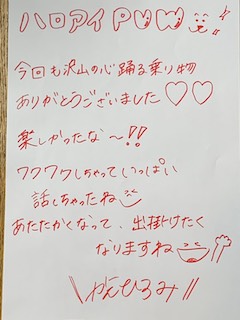 ハロアイPUW
今回も沢山の心踊る乗り物
ありがとうございました♡♡
楽しかったな〜!!
ワクワクしちゃっていっぱい
話しちゃったね
あたたかくなって、出掛けたく
なりますね
\\やんひろみ//